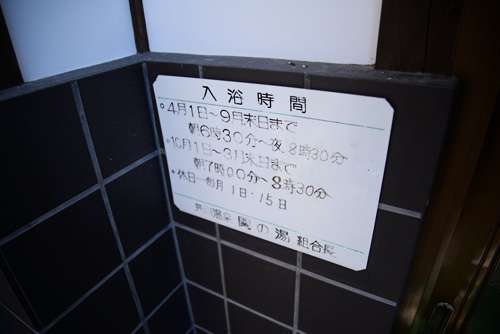 入浴時間
○4月1日～9月末日まで
朝6時30分～夜8時30分
○10月1日～3月末日まで
朝7時00分～8時30分
休日 毎月1日・15日
の湯 組合長